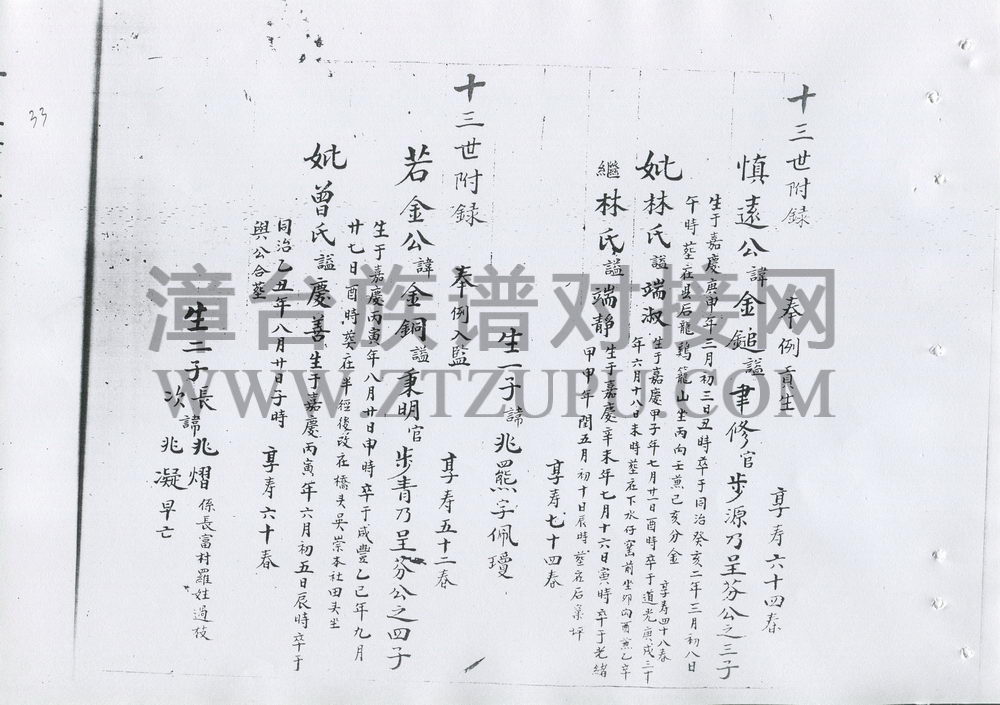 33
十三世附録
奉例貢生
享寿六十四春
慎遠公諱金鎚謚聿修官步源乃呈芬公之三子
生于嘉慶庚申年三月初三日丑時卒于同治癸亥二年三月初八日
午時塟在县后龍鷄籠山坐丙向壬兼己亥分金
妣林氏謚端淑生于嘉慶甲子年七月廿一日酉時卒于道光庚戌三十
享寿四十八春
年六月十八日未時塟在下水仔窰前坐卯向酉兼乙辛
繼林氏謚端静生于嘉慶辛未年七月十六日寅時卒于光緒
甲申年閏五月初十日辰時塟在后坪
享寿七十四春
生一子諱兆羆字佩瓊
十三世附録
奉例入監
享寿五十二春
若金公諱金銅謚秉明官步青乃呈芬公之四子
生于嘉慶丙寅年八月廿日申時卒于咸豐乙巳年九月
廿七日酉時葬在半徑後改在橋头吴崇本社田头坐
妣曾氏謚慶善生于嘉慶丙寅年六月初五日辰時卒于
同治乙丑年八月廿日子時
享寿六十春
與公合塟
生二子長諱兆熠係長富村羅姓過枝
次兆凝早亡
漳台族谱对接网
WWW.ZTZUPU.COM